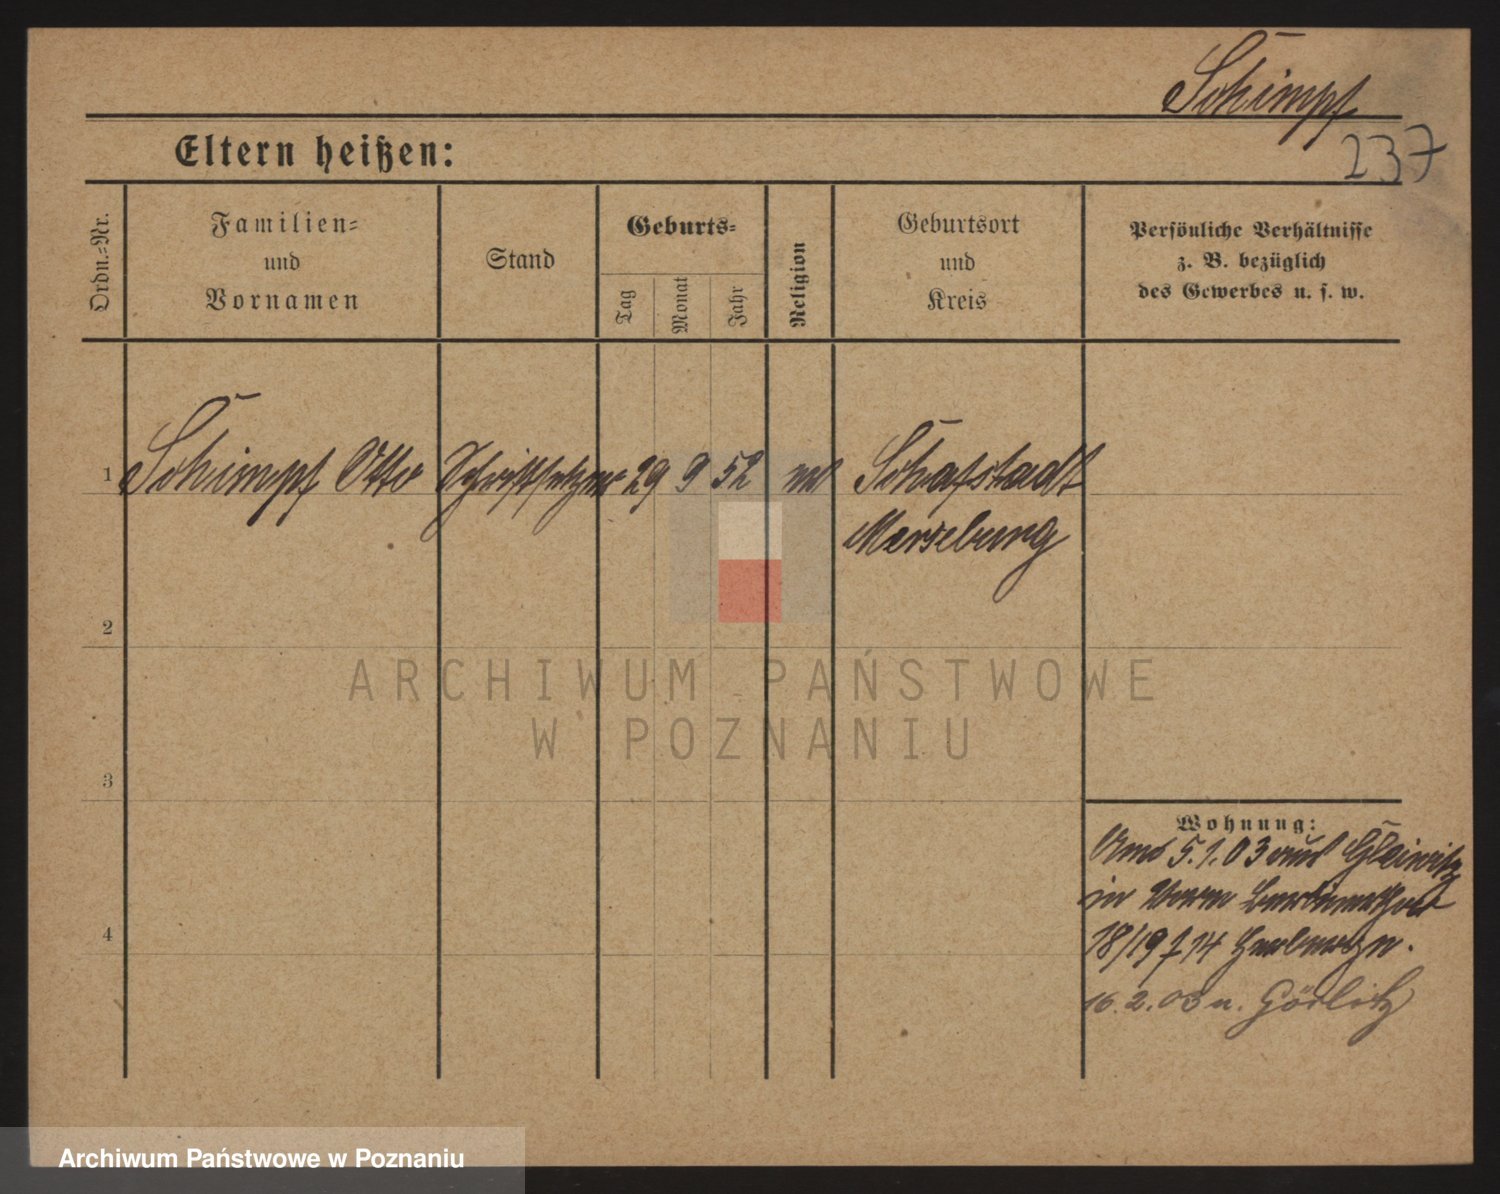 Schimpf
237
Eltern heißen:
Ordn.-Nr.
Familien-
und
Vornamen
Stand
Geburts-
Tag
Monat
Jahr
Religion
Geburtsort
und
Kreis
Persönliche Verhältnisse
z. B. bezüglich
des Gewerbes u. s. w.
1 Schimpf Otto Schriftsetzer 29 9 52 Schafstadt
Merseburg
2
3
4
Wohnung:
5.1.03 aus Gleiwitz
in
18/19
16.2.03 n. Görlitz
ARCHIWUM PAŃSTWOWE
W POZNANIU
Archiwum Państwowe w Poznaniu